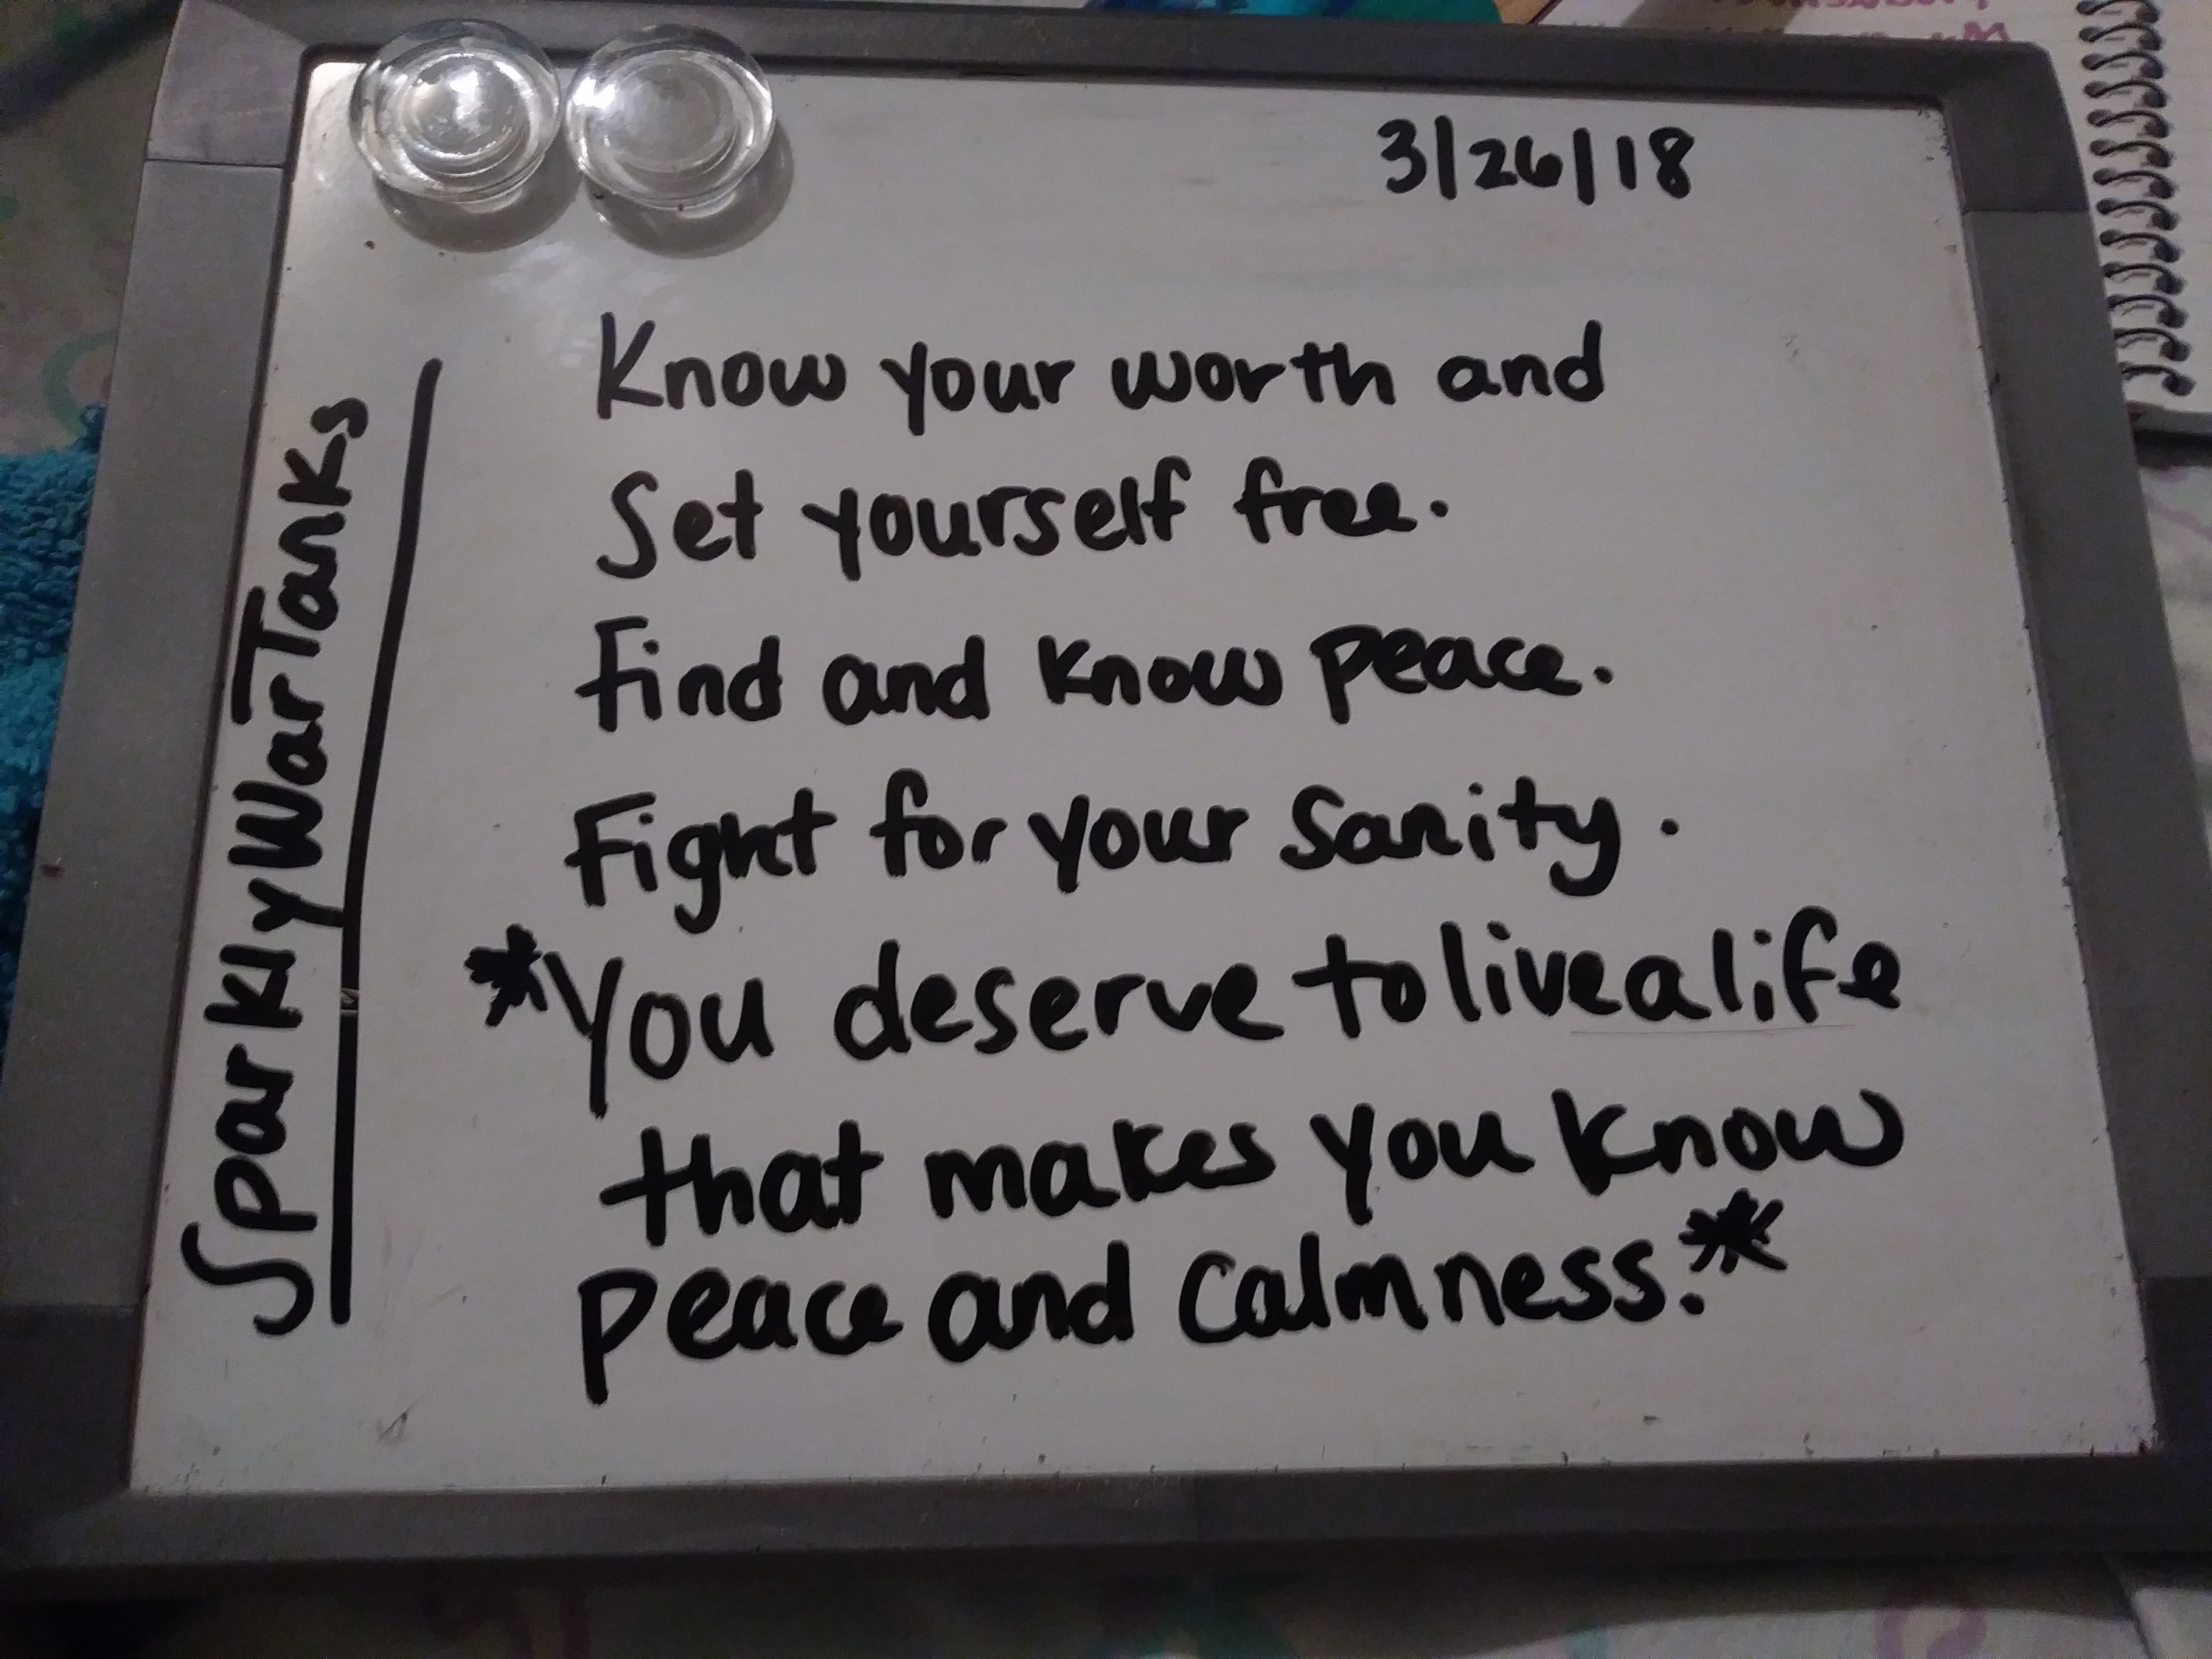 3/26/18
SparklyWarTanks
Know your worth and
Set yourself free.
Find and know peace.
Fight for your Sanity.
*You deserve to live a life
that makes you know
peace and calmness.*